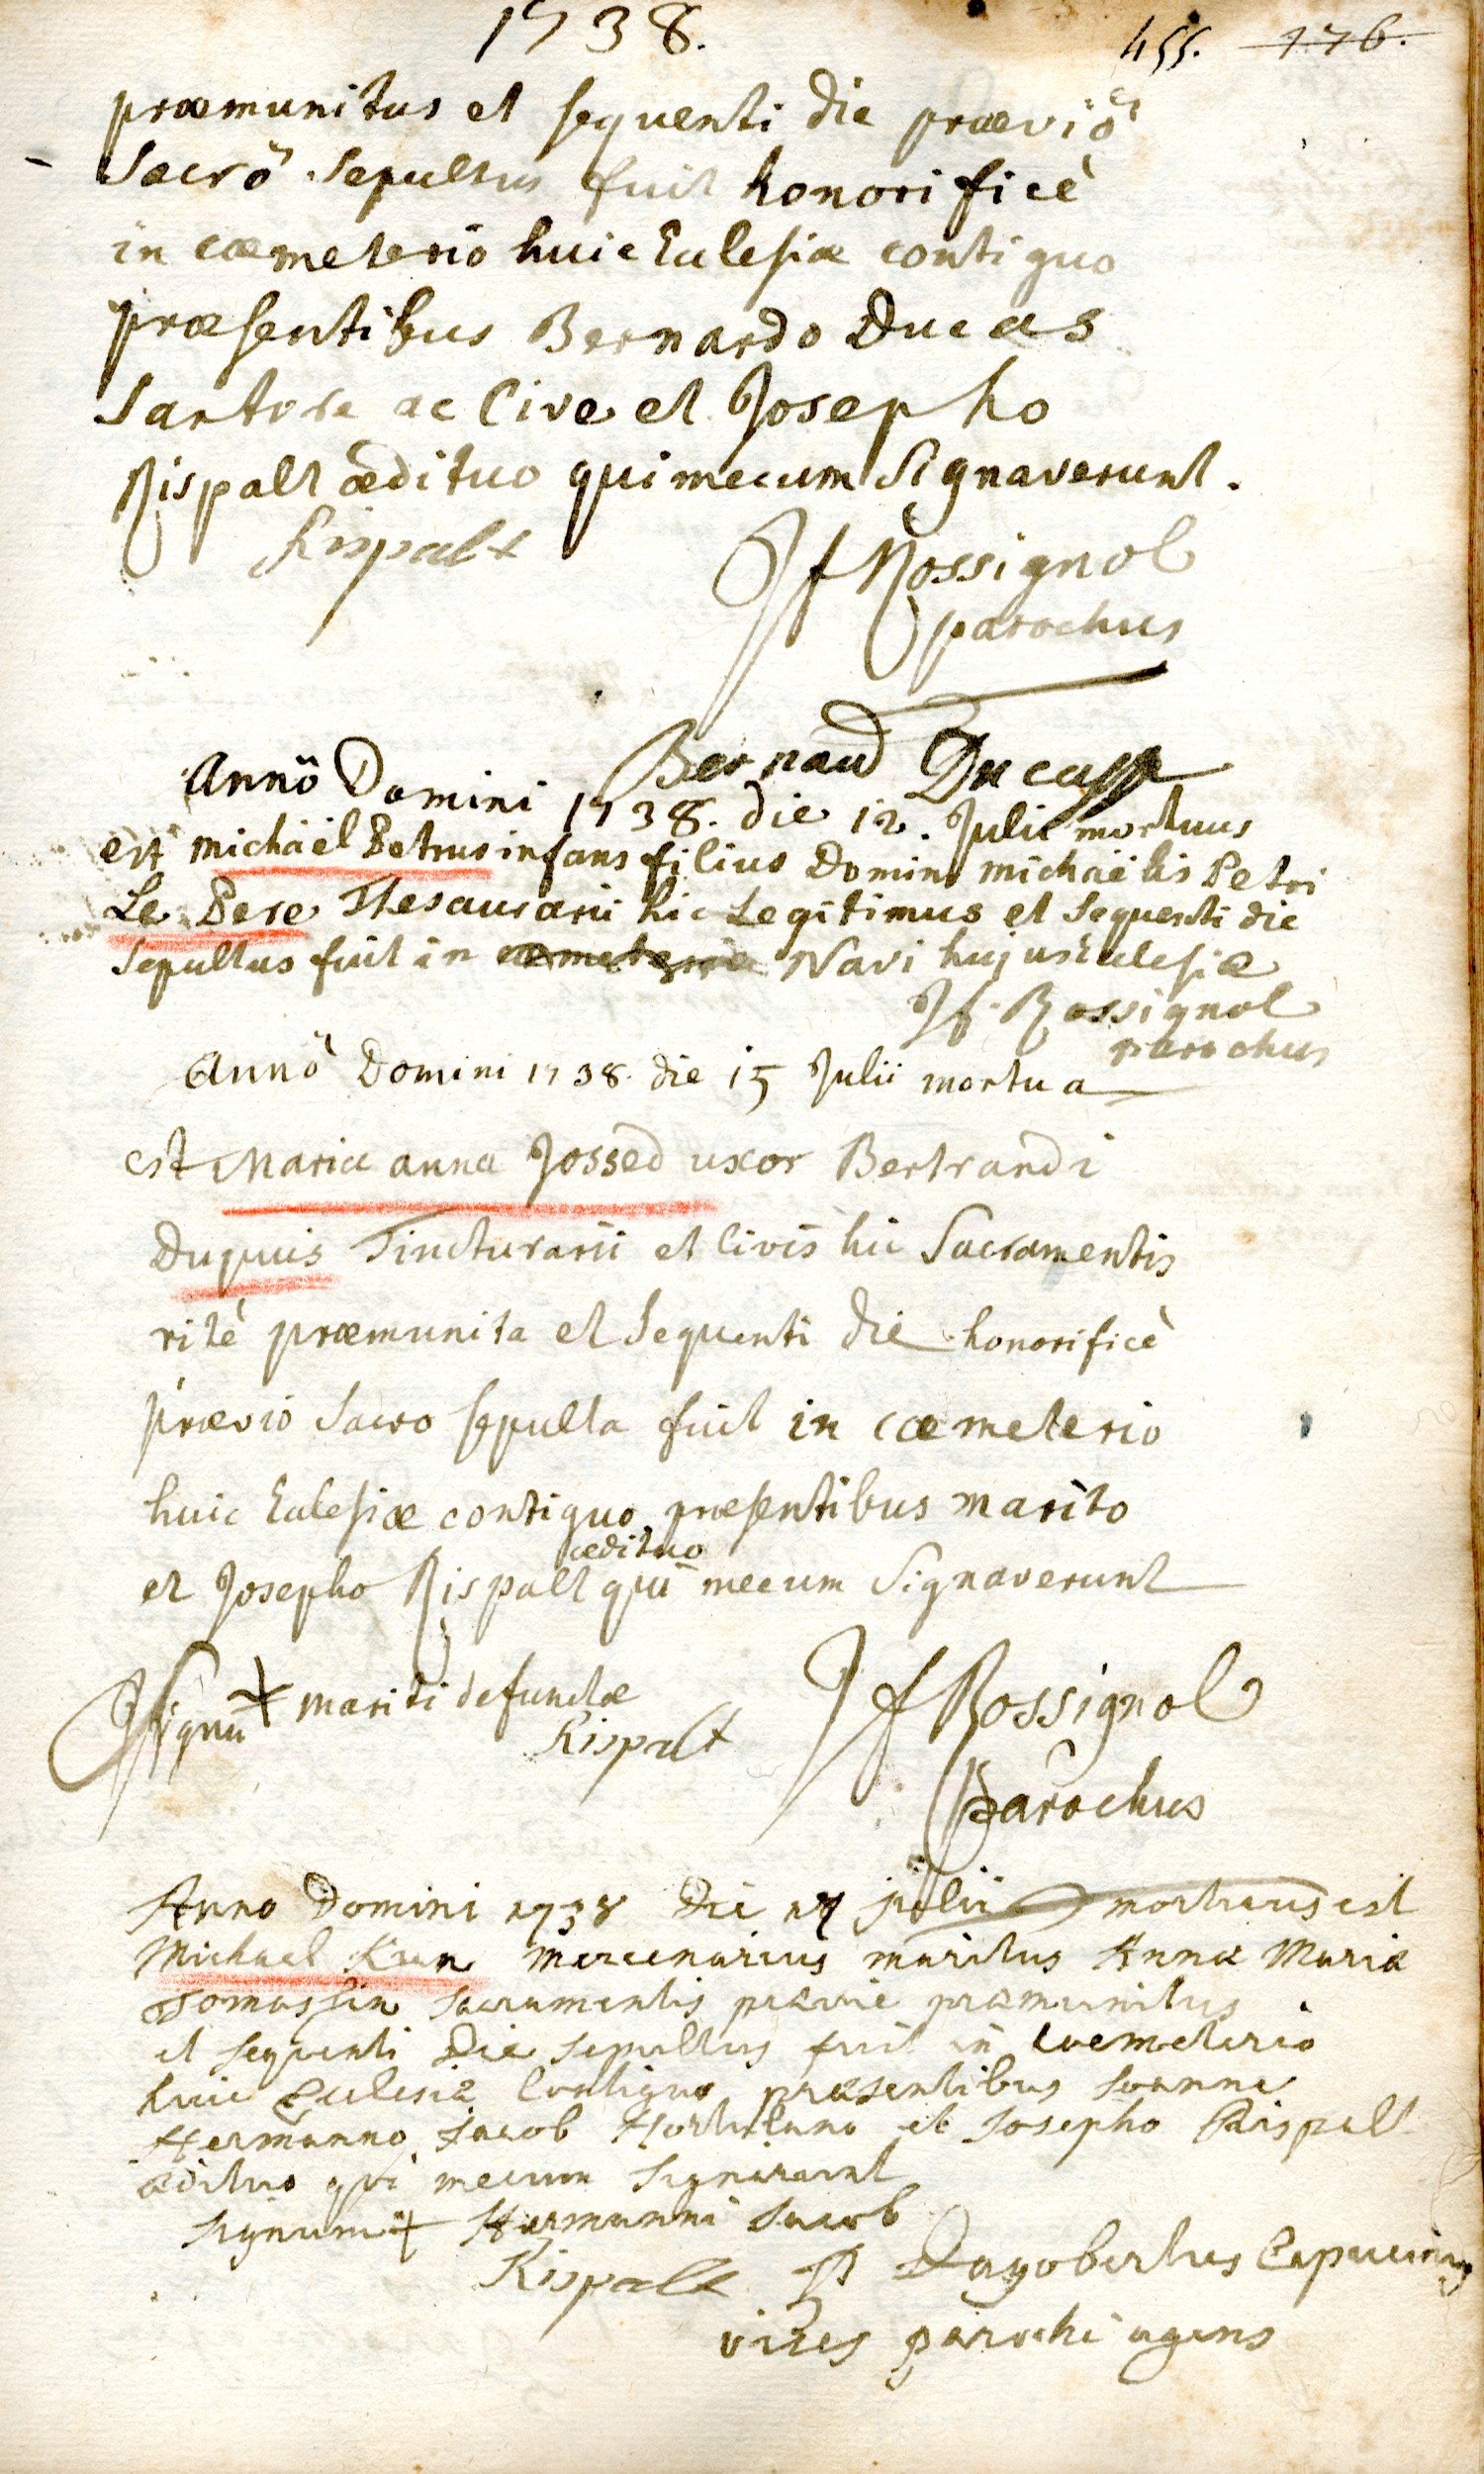 1738.
455. 176.
præmunitus et sequenti die præviö
Sacrö Sepultus fuit honorificè
in cœmeterio huic Eclesiæ contiguo
præsentibus Bernardo Ducas
Sartore ac Cive et Josepho
Rispalt ædituo qui mecum Signaverunt.
Rispalt Jf Rossignol
parochus
Bernaud Ducasse
Annö Domini 1738. die 12. Julii mortuus
est michäel Petrus infans filius Domini michäelis Petri
Le Pere Thesaurarii hic Legitimus et Sequenti die
Sepultus fuit in cœmeterio Navi hujus Eclesiæ
Jf. Rossignol
parochus
Annö Domini 1738. die 15 Julii mortua
est Maria anna Jossed uxor Bertrandi
Dupuis Tincturarii et Civis hic Sacramentis
ritè præmunita et Sequenti die honorificè
prævio Sacro sepulta fuit in cœmeterio
huic Eclesiæ contiguo præsentibus marito
ædituo
et Josepho Rispalt qui mecum Signaverunt
Signū + mariti defunctæ
Rispalt
Jf Rossignol
Parochus
Anno Domini 1738 Die 17 julii mortuus est
Michael Kun mercenarius maritus Annæ Mariæ
Tomassin sacramentis prævie præmunitus
et sequenti Die sepultus fuit in Coemeterio
huic Eclesiæ Contiguo præsentibus Joanne
Hermanno Jacob Hortulano et Josepho Rispalt
ædituo qui mecum signarunt
signum + Hermanni Jacob
Rispalt P Dagobertus Capucinus
vices parochi agens